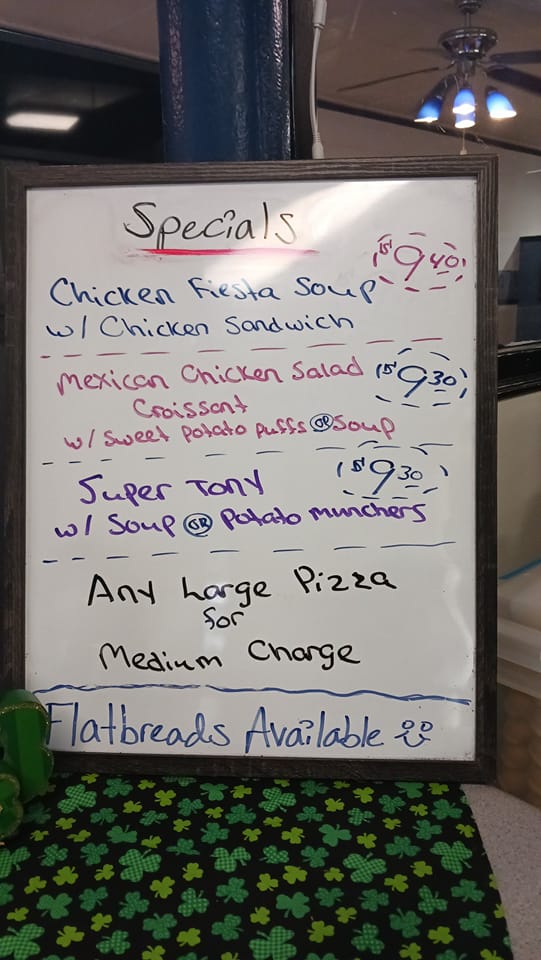 Specials
$9.40
Chicken Fiesta Soup
w/ Chicken Sandwich
Mexican Chicken Salad
$9.30
Croissant
w/ Sweet potato puffs OR Soup
Super Tony
$9.30
w/ Soup OR Potato munchers
Any Large Pizza
for
Medium Charge
Flatbreads Available